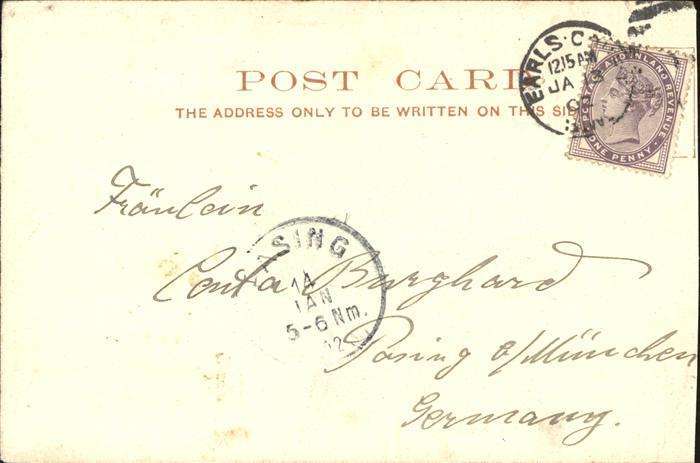 POST CARD
THE ADDRESS ONLY TO BE WRITTEN ON THIS SIDE
EARLS C
12 15 AM
JA
POSTAGE AND INLAND REVENUE
ONE PENNY
Fräulein
Burghard
Pasing b/München
Germany.
PASING
14
JAN
5-6 Nm.
02